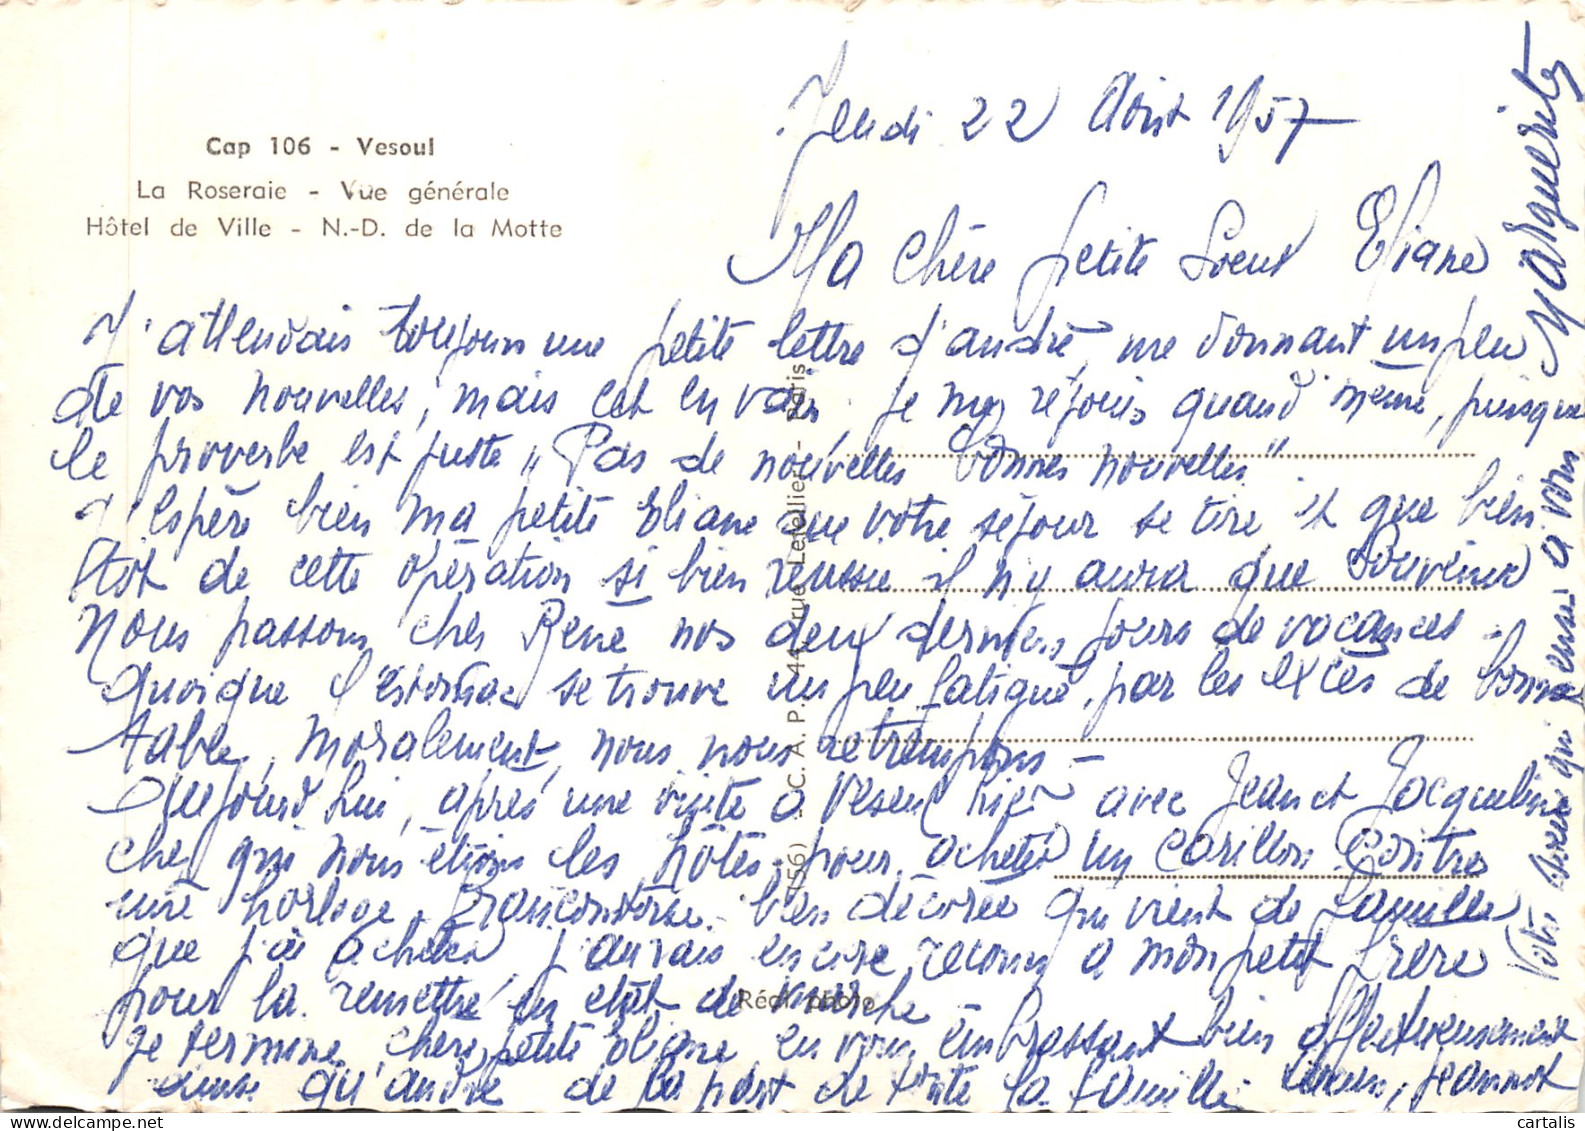 Cap 106 - Vesoul
La Roseraie - Vue générale
Hôtel de Ville - N.-D. de la Motte
Jeudi 22 Août 1957
Ma chère petite Soeur Eliane
J'attendais toujours une petite lettre d'andré, me donnant un peu
de vos nouvelles, mais cet en vain. je me réjouis quand même, puisque
le proverbe est juste "Pas de nouvelles bonnes nouvelles".
J'espère bien ma petite Eliane que votre séjour se tire et que bien
tôt de cette opération si bien réussie il n'y aura que souvenir
Nous passons chez René nos deux derniers jours de vacances -
quoique l'estomac se trouve un peu fatigué, par les excès de bonne
table, moralement, nous nous retrempons -
Aujourd'hui, après une visite à Vesoul hier avec Jean et Jacqueline
chez qui nous étions les hôtes, pour acheter un carillon contre
une horloge Franccomtoise bien décorée qui vient de famille
que j'ai acheter j'aurais encore recours a mon petit frère
pour la remettre en état de marche
Je termine chère petite Eliane en vous embrassant bien affectueusement
ainsi qu'andré de la part de toute la famille Jeannot
Votre soeur qui pense à vous Marguerite
(56) - C. A. P. 44, rue Letellier - Paris
Réel photo
cartalis